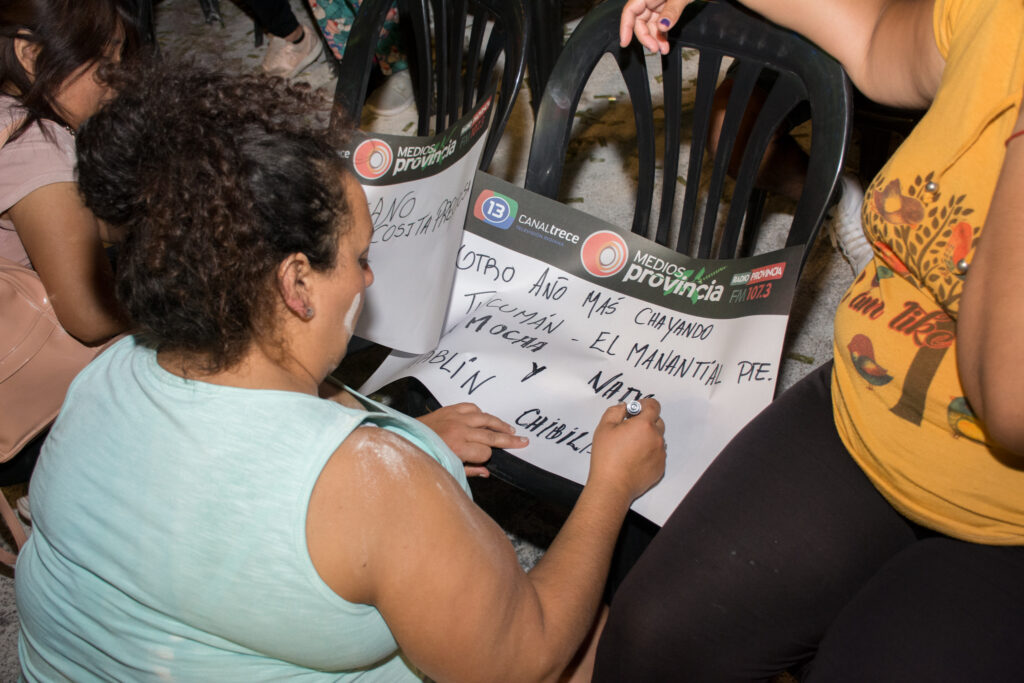 MEDIOS
provincia
AÑO
COSITA
13
CANALtrece
MEDIOS
provincia
RADIO PROVINCIA
FM 107.3
OTRO AÑO MAS CHAYANDO
TUCUMÁN - EL MANANTIAL PTE.
MOCHA Y
CHIBILI
I am like